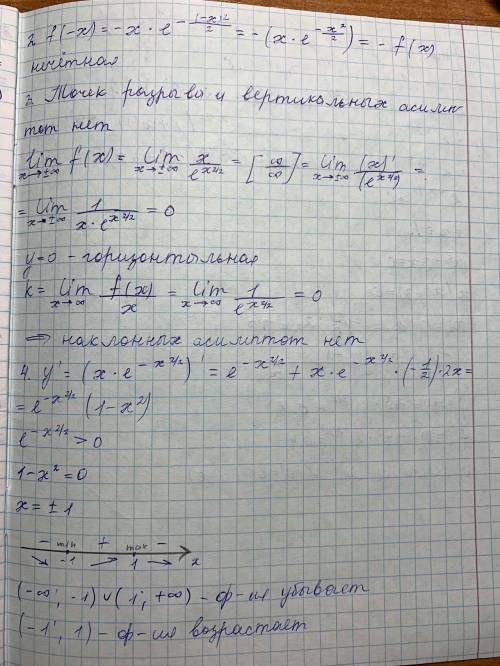 2 f(-x) = -x · e^{-\frac{(-x)^2}{2}} = -(x · e^{-\frac{x^2}{2}}) = -f(x)
нечётная
2 Точек разрыва и вертикальных асимп
тот нет
lim_{x→±∞} f(x) = lim_{x→±∞} \frac{x}{e^{x^2/2}} = [\frac{∞}{∞}] = lim_{x→±∞} \frac{(x)'}{(e^{x^2/2})'} =
= lim_{x→±∞} \frac{1}{x·e^{x^2/2}} = 0
y=0 - горизонтальная
k = lim_{x→∞} \frac{f(x)}{x} = lim_{x→∞} \frac{1}{e^{x^2/2}} = 0
⇒ наклонных асимптот нет
4. y' = (x · e^{-x^2/2})' = e^{-x^2/2} + x · e^{-x^2/2} · (-\frac{1}{2}) · 2x =
= e^{-x^2/2} (1-x^2)
e^{-x^2/2} > 0
1-x^2 = 0
x = ± 1
- min + max -
-1 1 x
(-∞; -1) ∪ (1; +∞) - ф-ия убывает
(-1; 1) - ф-ия возрастает